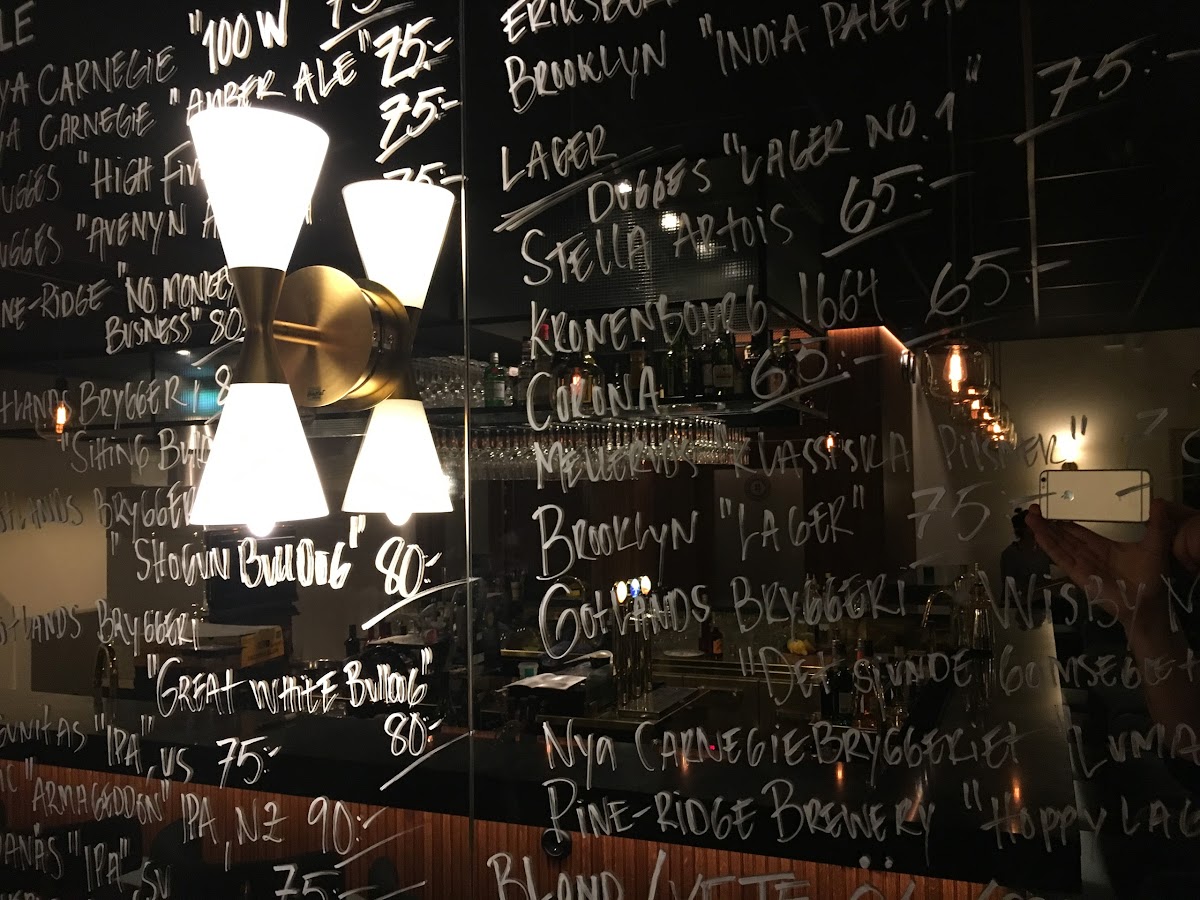 LE
YA CARNEGIE "100W
75:-
YA CARNEGIE "AMBER ALE" 75:-
UGGES "HIGH FIV
75:-
UGGES "AVENYN A
75:-
NE-RIDGE "NO MONKEY
BUSINESS" 80
OTLANDS BRYGGERI 8
"SITTING BULL
OTLANDS BRYGGERI
"SHOGUN BULLDOG" 80:-
OTLANDS BRYGGERI
"GREAT WHITE BULLDOG"
80:-
GUNITAS "IPA" US 75:-
"ARMAGEDDON" IPA, NZ 90:-
"IPA" SV
75:-
BROOKLYN "INDIA PALE A
LAGER
DUGGES "LAGER NO. 1" 75:-
STELLA ARTOIS 65:-
KRONENBOURG 1664 65:-
CORONA 65:-
MELLERUDS "KLASSISKA PILSNER" 7
BROOKLYN "LAGER" 75:-
GOTLANDS BRYGGERI WISBY
"DET SJUNDE
NYA CARNEGIEBRYGGERIET
PINE-RIDGE BREWERY "HOPPY LAG
BLOND/VETE